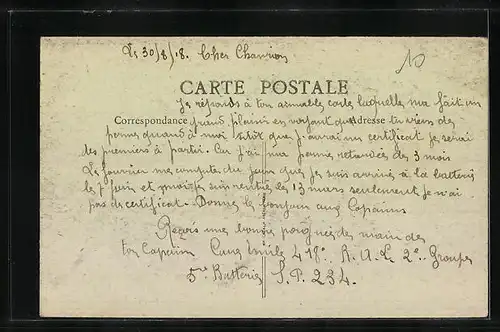 Le 30/8/18. Cher Chanrion
10
CARTE POSTALE
Je réponds à ton aimable carte laquelle ma fait un
Correspondance grand plaisir en voyant que Adresse tu viens des
permes quand à moi sitot que j'aurai un certificat je serai
des premiers à partir. Car j'ai ma perme retardée des 3 mois
de janvier me compter du jour que je suis arrivé à la batterie
le 7 juin et moi je suis rentré le 13 mars seulement je n'ai
pas de certificat. Donnez le bonjour aux Copains
Reçois une bonne poignée de main de
ton Copain Emile 418e R.A.L. 2e Groupe
5me Batterie S.P. 234.